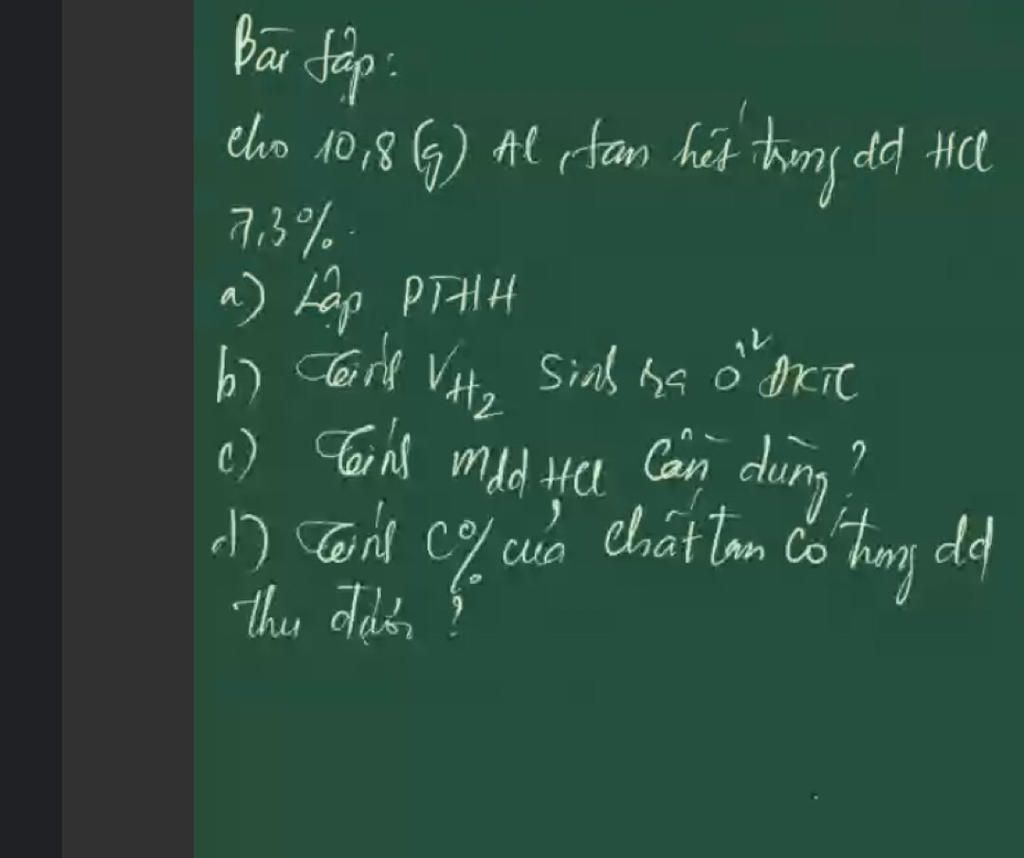 Bài tập:
Cho 10,8 (g) Al tan hết trong dd HCl
7,3%.
a) Lập PTHH
b) Tính VH₂ sinh ra ở ĐKTC
c) Tính mdd HCl cần dùng?
d) Tính C% của chất tan có trong dd
thu được?